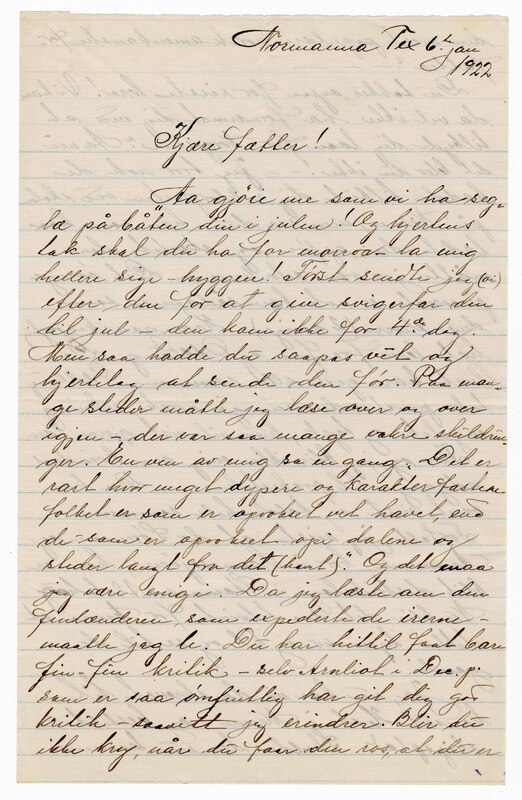 Normanna Tex 6te jan
1922
Kjære fætter!
"Aa gjøie me som vi ha seg-
la på båten din i julen! Og hjertens
tak skal du ha for morroa - la mig
hellere sige - hyggen! Først sendte jeg (vi)
efter den for at give svigerfar den
til jul - den kom ikke før 4de dag.
Men saa hadde du saapas vét og
hjertelag at sende den før. Paa man-
ge steder måtte jeg læse over og over
igjen - der var saa mange vakre skildrin-
ger. En ven av mig sa engang, "Det er
rart hvor meget dypere og karakterfastere
folket er som er opvokset vet havet, end
de som er opvokset opi dalene og
steder langt fra det (havet)". Og det maa
jeg være enig i. Da jeg læste om den
finlænderen, som expederte de
maatte jeg le. Du har hittil faat bare
fin-fin kritik - selv Arnljot i Dec. p.
som er saa ømfintlig har git dig god
kritik - saavitt jeg erindrer. Blir du
ikke kry, når du faar den ros, at du er